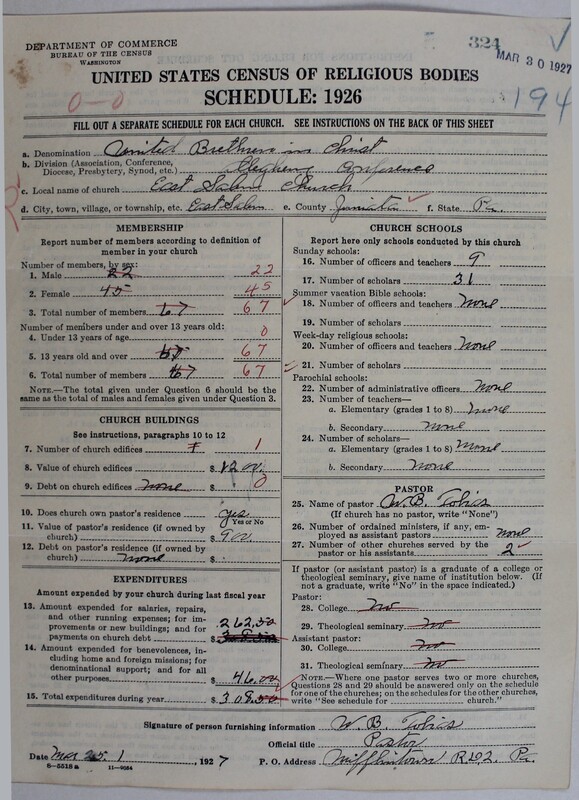 DEPARTMENT OF COMMERCE
BUREAU OF THE CENSUS
WASHINGTON
324
MAR 30 1927
UNITED STATES CENSUS OF RELIGIOUS BODIES
SCHEDULE: 1926
0-0
194
FILL OUT A SEPARATE SCHEDULE FOR EACH CHURCH. SEE INSTRUCTIONS ON THE BACK OF THIS SHEET
a. Denomination United Brethren in Christ
b. Division (Association, Conference, Diocese, Presbytery, Synod, etc.) Allegheny Conference
c. Local name of church East Salem Church
d. City, town, village, or township, etc. East Salem e. County Juniata f. State Pa.
MEMBERSHIP
Report number of members according to definition of member in your church
Number of members, by sex:
1. Male 22 22
2. Female 45 45
3. Total number of members 67 67
Number of members under and over 13 years old:
4. Under 13 years of age 0
5. 13 years old and over 67
6. Total number of members 67 67
NOTE.—The total given under Question 6 should be the same as the total of males and females given under Question 3.
CHURCH BUILDINGS
See instructions, paragraphs 10 to 12
7. Number of church edifices 1 1
8. Value of church edifices $1200.
9. Debt on church edifices None $ 0
10. Does church own pastor's residence yes
Yes or No
11. Value of pastor's residence (if owned by church) $ 900
12. Debt on pastor's residence (if owned by church) None $
EXPENDITURES
Amount expended by your church during last fiscal year
13. Amount expended for salaries, repairs, and other running expenses; for improvements or new buildings; and for payments on church debt $ 262.50
14. Amount expended for benevolences, including home and foreign missions; for denominational support; and for all other purposes $ 46.00
15. Total expenditures during year $ 308.50
CHURCH SCHOOLS
Report here only schools conducted by this church
Sunday schools:
16. Number of officers and teachers 9
17. Number of scholars 31
Summer vacation Bible schools:
18. Number of officers and teachers None
19. Number of scholars
Week-day religious schools:
20. Number of officers and teachers None
21. Number of scholars
Parochial schools:
22. Number of administrative officers None
23. Number of teachers—
a. Elementary (grades 1 to 8) None
b. Secondary None
24. Number of scholars—
a. Elementary (grades 1 to 8) None
b. Secondary None
PASTOR
25. Name of pastor W. B. Tobias
(If church has no pastor, write "None")
26. Number of ordained ministers, if any, employed as assistant pastors None
27. Number of other churches served by the pastor or his assistants 2
If pastor (or assistant pastor) is a graduate of a college or theological seminary, give name of institution below. (If not a graduate, write "No" in the space indicated.)
Pastor:
28. College No
29. Theological seminary No
Assistant pastor:
30. College No
31. Theological seminary No
NOTE.—Where one pastor serves two or more churches, Questions 28 and 29 should be answered only on the schedule for one of the churches; on the schedules for the other churches, write "See schedule for church."
Signature of person furnishing information W. B. Tobias
Official title Pastor
Date Mar 25, 1927 P. O. Address Mifflintown R.D.2. Pa.
8-5518a 11-9584